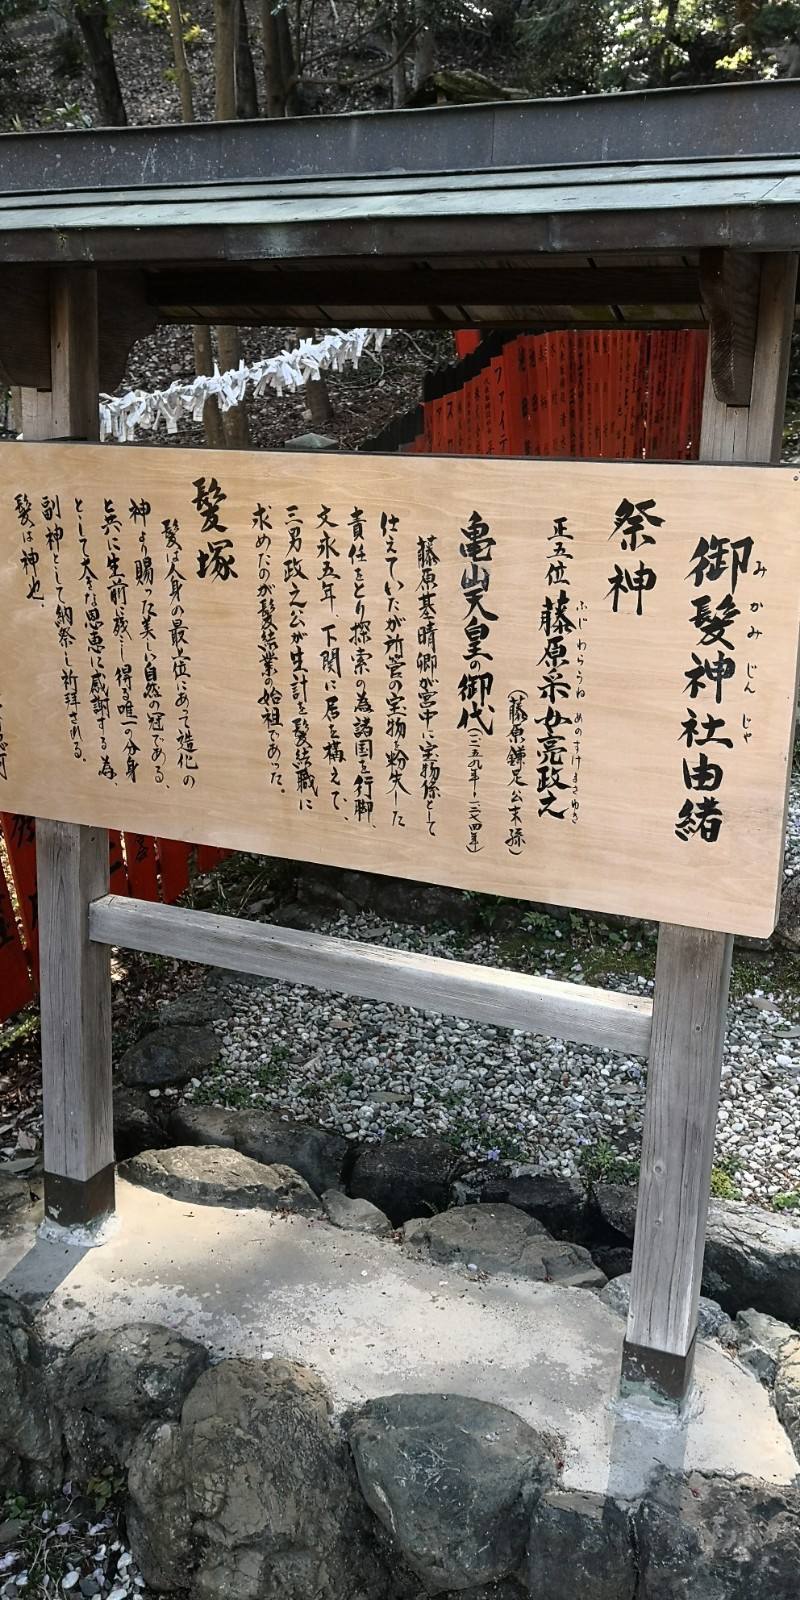 御髪神社由緒
みかみじんじゃ
祭神
正五位 藤原采女亮政之
ふじわらうねめのすけまさゆき
(藤原鎌足公末孫)
亀山天皇の御代(一二五九年~一二七四年)
藤原基晴卿が宮中に宝物係として
仕えていたが所管の宝物を紛失した
責任をとり探索の為諸国を行脚、
文永五年、下関に居を構えて、
三男政之公が生計を髪結職に
求めたのが髪結業の始祖であった。
髪塚
髪は人身の最上位にあって造化の
神より賜った美しい自然の冠である、
と共に生前に残し得る唯一の分身
として大きな恩恵に感謝する為、
副神として納祭し祈拝される。
髪は神也、
ファイテ